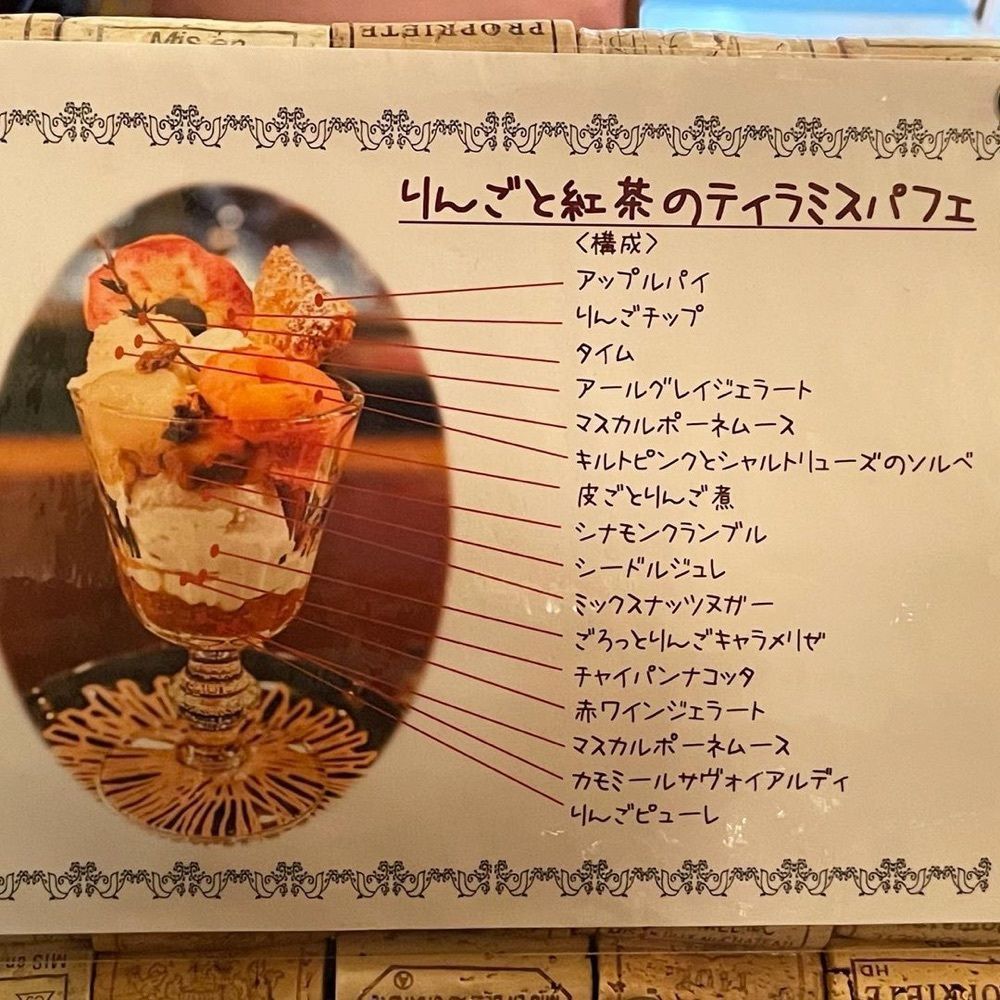 Mis en
PROPRIETE
りんごと紅茶のティラミスパフェ
〈構成〉
アップルパイ
りんごチップ
タイム
アールグレイジェラート
マスカルポーネムース
キルトピンクとシャルトリューズのソルベ
皮ごとりんご煮
シナモンクランブル
シードルジュレ
ミックスナッツヌガー
ごろっとりんごキャラメリゼ
チャイパンナコッタ
赤ワインジェラート
マスカルポーネムース
カモミールサヴォイアルディ
りんごピューレ
MIS en
HD
PROPRIETE